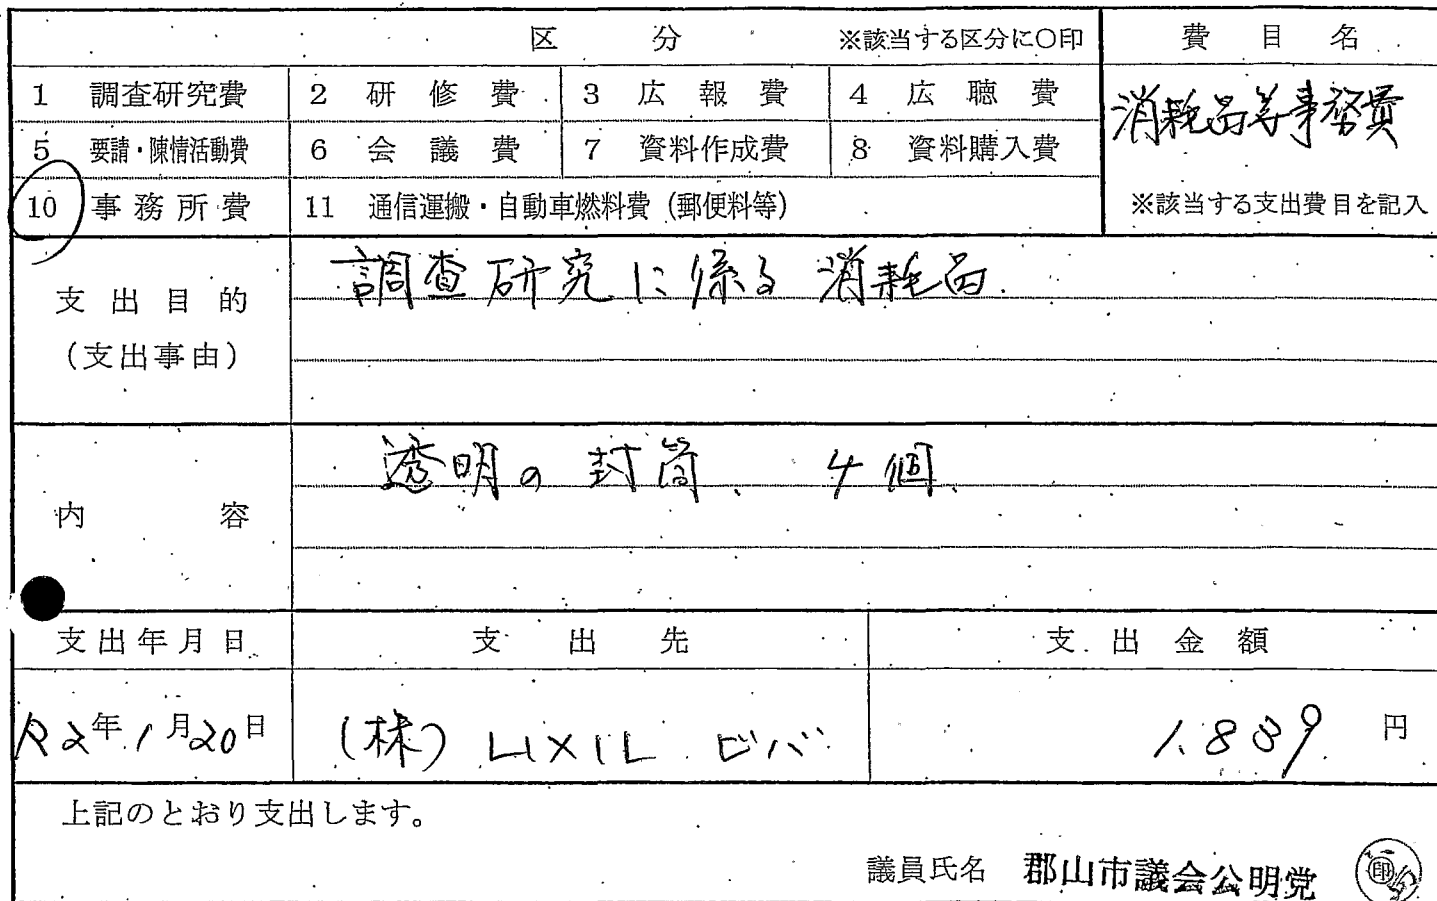 区 分 ※該当する区分に〇印 費目名
1 調査研究費 2 研修費 3 広報費 4 広聴費 消耗品等事務費
5 要請・陳情活動費 6 会議費 7 資料作成費 8 資料購入費
10 事務所費 11 通信運搬・自動車燃料費（郵便料等） ※該当する支出費目を記入
支出目的 調査研究に係る消耗品.
（支出事由）
内容 透明の封筒、4個、
支出年月日 支出先 支出金額
R2年1月20日 (株) LIXIL ビバ 1.839 円
上記のとおり支出します。
議員氏名 郡山市議会公明党 印